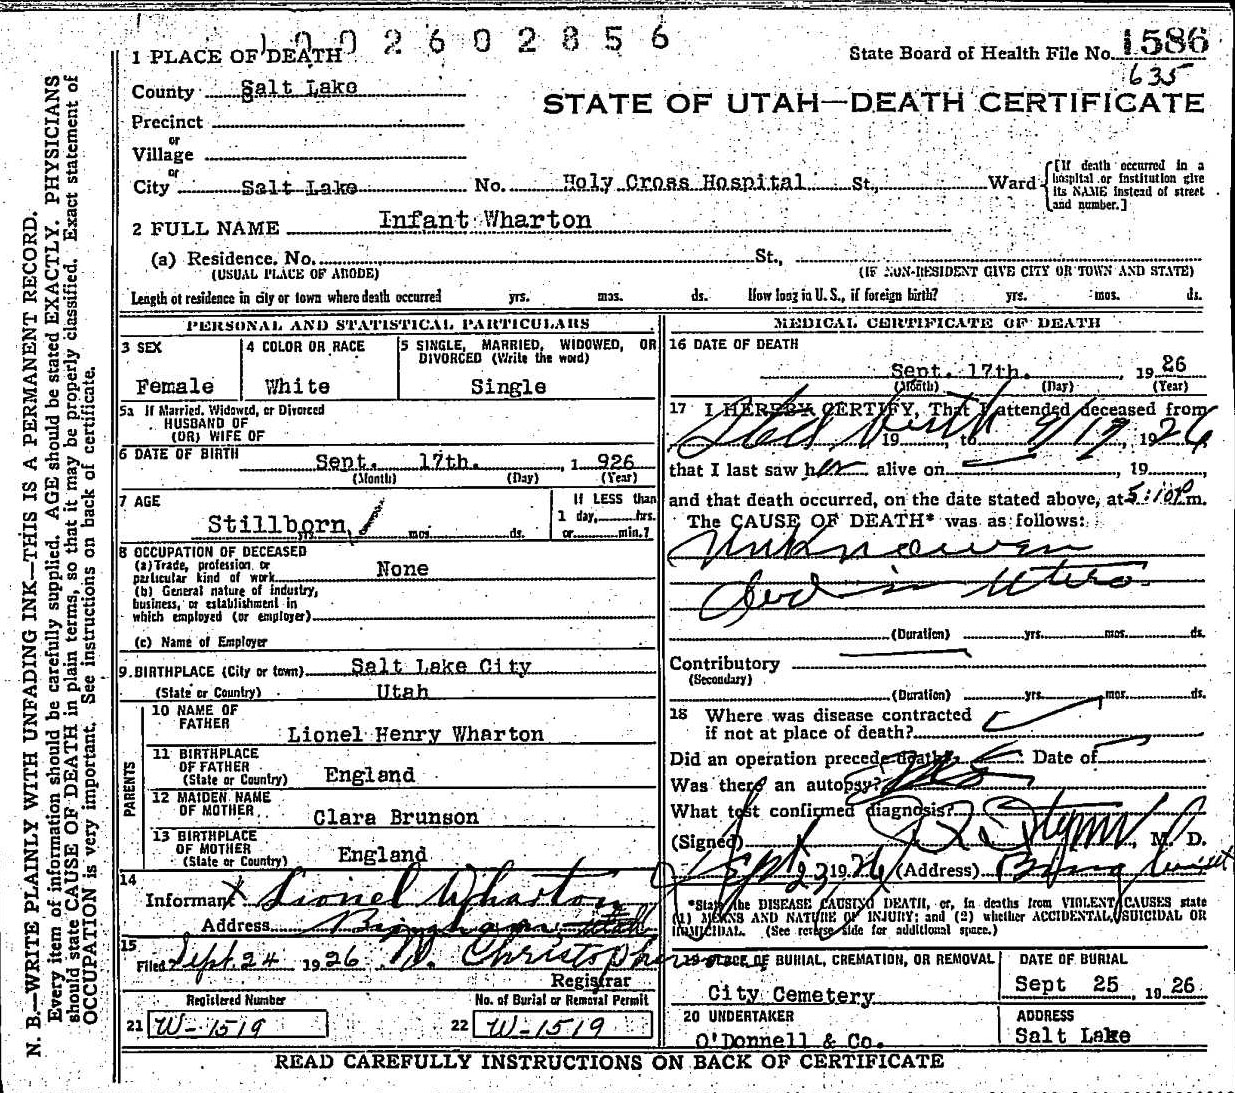 1002602856
1 PLACE OF DEATH
State Board of Health File No. 1586
635
County Salt Lake
STATE OF UTAH—DEATH CERTIFICATE
Precinct
or
Village
or
City Salt Lake No. Holy Cross Hospital St., Ward
[If death occurred in a
hospital or institution give
its NAME instead of street
and number.]
2 FULL NAME Infant Wharton
(a) Residence. No. St.,
(USUAL PLACE OF ABODE) (IF NON-RESIDENT GIVE CITY OR TOWN AND STATE)
Length of residence in city or town where death occurred yrs. mos. ds. How long in U. S., if foreign birth? yrs. mos. ds.
PERSONAL AND STATISTICAL PARTICULARS
3 SEX
Female
4 COLOR OR RACE
White
5 SINGLE, MARRIED, WIDOWED, OR
DIVORCED (Write the word)
Single
5a If Married, Widowed, or Divorced
HUSBAND OF
(OR) WIFE OF
6 DATE OF BIRTH Sept. 17th. , 1 926
(Month) (Day) (Year)
7 AGE
Stillborn
yrs. mos. ds.
If LESS than
1 day, hrs.
or min.?
8 OCCUPATION OF DECEASED
(a) Trade, profession or
particular kind of work None
(b) General nature of industry,
business, or establishment in
which employed (or employer)
(c) Name of Employer
9 BIRTHPLACE (City or town) Salt Lake City
(State or Country) Utah
PARENTS
10 NAME OF
FATHER
Lionel Henry Wharton
11 BIRTHPLACE
OF FATHER
(State or Country) England
12 MAIDEN NAME
OF MOTHER
Clara Brunson
13 BIRTHPLACE
OF MOTHER
(State or Country) England
14
Informant x Lionel Wharton
Address Bingham Utah
15
Filed Sept. 24 1926 Christopherson
Registrar
Registered Number
21 W-1519
No. of Burial or Removal Permit
22 W-1519
MEDICAL CERTIFICATE OF DEATH
16 DATE OF DEATH
Sept. 17th. , 19 26
(Month) (Day) (Year)
17 I HEREBY CERTIFY, That I attended deceased from
Still birth 19 , to 9/17, 1926,
that I last saw her alive on , 19 ,
and that death occurred, on the date stated above, at 5:10 P m.
The CAUSE OF DEATH* was as follows:
Unknown
Died in Utero
(Duration) yrs. mos. ds.
Contributory
(Secondary)
(Duration) yrs. mos. ds.
18 Where was disease contracted
if not at place of death?
Did an operation precede death? Date of
Was there an autopsy?
What test confirmed diagnosis?
(Signed) , M. D.
Sept 23 1926 (Address)
*State the DISEASE CAUSING DEATH, or, in deaths from VIOLENT CAUSES state
(1) MEANS AND NATURE OF INJURY; and (2) whether ACCIDENTAL, SUICIDAL OR
HOMICIDAL. (See reverse side for additional space.)
19 PLACE OF BURIAL, CREMATION, OR REMOVAL
City Cemetery
DATE OF BURIAL
Sept 25 , 19 26
20 UNDERTAKER
O'Donnell & Co.
ADDRESS
Salt Lake
READ CAREFULLY INSTRUCTIONS ON BACK OF CERTIFICATE
N. B.—WRITE PLAINLY WITH UNFADING INK—THIS IS A PERMANENT RECORD.
Every item of information should be carefully supplied. AGE should be stated EXACTLY. PHYSICIANS
should state CAUSE OF DEATH in plain terms, so that it may be properly classified. Exact statement of
OCCUPATION is very important. See instructions on back of certificate.